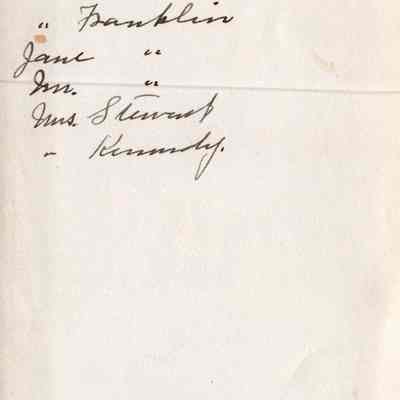 " Franklin
Jane "
Mr. "
Mrs. Stewart
" Kennedy.